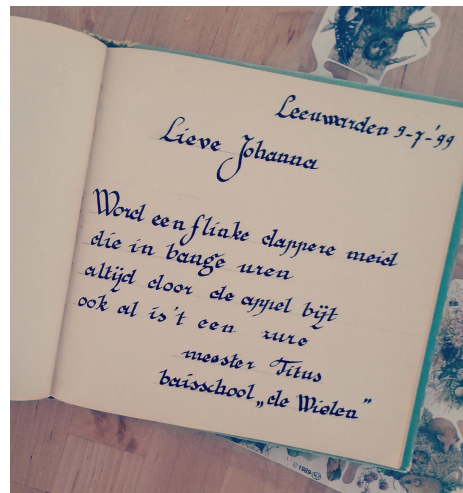 Leeuwarden 9-7-'99
Lieve Johanna
Word een flinke dappere meid
die in bange uren
altijd door de appel bijt
ook al is 't een zure
meester Titus
baisschool „de Wielen”
©1989